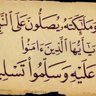 وَمَلَٰٓئِكَتَهُۥ يُصَلُّونَ عَلَى النَّبِ
يَٰٓأَيُّهَا الَّذِينَ ءَامَنُوا
عَلَيْهِ وَسَلِّمُوا تَسْلِي